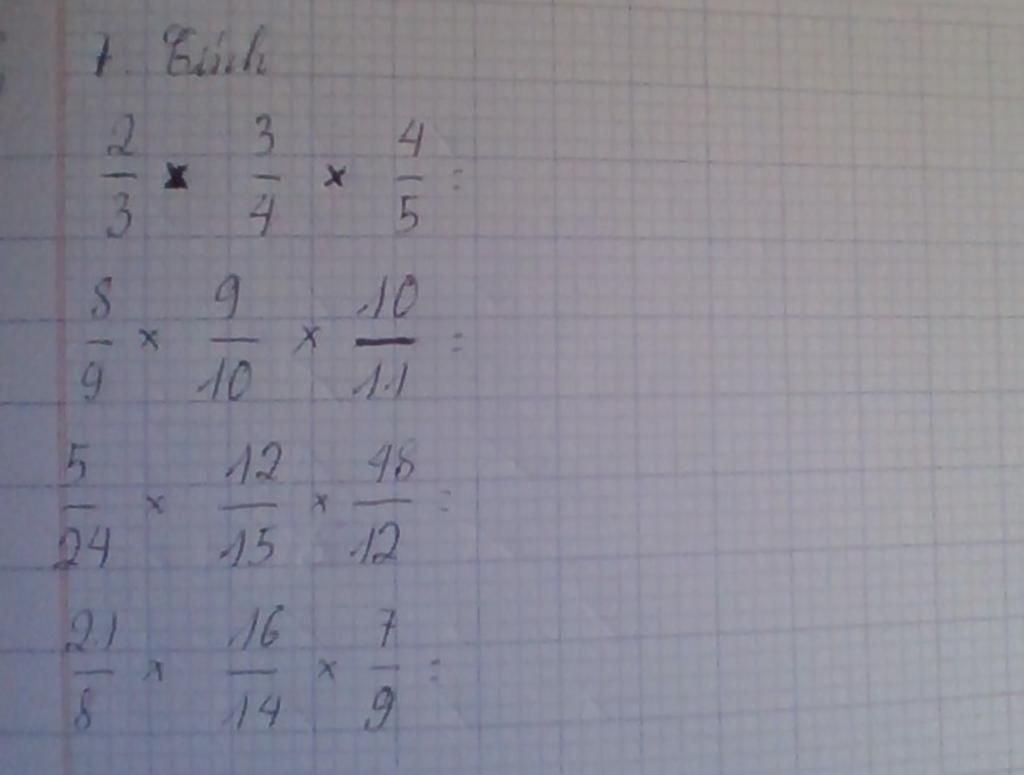 1. Tính
2/3 × 3/4 × 4/5 =
8/9 × 9/10 × 10/11 =
5/24 × 12/15 × 48/12 =
21/8 × 16/14 × 7/9 =